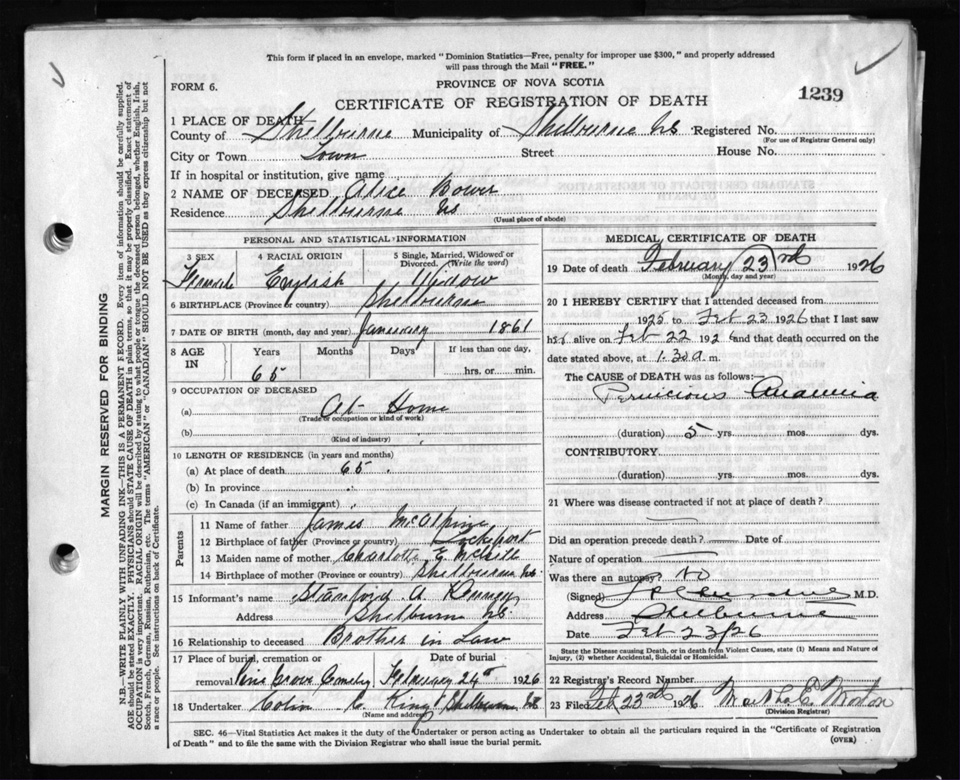 This form if placed in an envelope, marked "Dominion Statistics—Free, penalty for improper use $300," and properly addressed
will pass through the Mail "FREE."
FORM 6.
PROVINCE OF NOVA SCOTIA
CERTIFICATE OF REGISTRATION OF DEATH
1239
1 PLACE OF DEATH
County of Shelburne Municipality of Shelburne NS Registered No.
(For use of Registrar General only)
City or Town Town Street House No.
If in hospital or institution, give name
2 NAME OF DECEASED Alice Bower
Residence Shelburne NS
(Usual place of abode)
PERSONAL AND STATISTICAL INFORMATION
3 SEX 4 RACIAL ORIGIN 5 Single, Married, Widowed or Divorced. (Write the word)
Female English Widow
6 BIRTHPLACE (Province or country) Shelburne
7 DATE OF BIRTH (month, day and year) January 1861
8 AGE IN Years Months Days If less than one day,
65 hrs. or min.
9 OCCUPATION OF DECEASED
(a) At Home
(Trade or occupation or kind of work)
(b)
(Kind of industry)
10 LENGTH OF RESIDENCE (in years and months)
(a) At place of death 65
(b) In province
(c) In Canada (if an immigrant)
Parents
11 Name of father James McAlpine
12 Birthplace of father (Province or country) Lockeport
13 Maiden name of mother Charlotte E McNeill
14 Birthplace of mother (Province or country) Shelburne NS.
15 Informant's name A Kenney
Address Shelburne NS.
16 Relationship to deceased Brother in Law
17 Place of burial, cremation or Date of burial
removal Pine Grove Cemetery February 24th 1926
18 Undertaker Colin C. King Shelburne NS
(Name and address)
MEDICAL CERTIFICATE OF DEATH
19 Date of death February 23rd 1926
(Month, day and year)
20 I HEREBY CERTIFY that I attended deceased from
1925 to Feb 23 1926 that I last saw
h alive on Feb 22 1926 and that death occurred on the
date stated above, at 1.30 a. m.
The CAUSE OF DEATH was as follows:—
Pernicious Anaemia
(duration) 5 yrs. mos. dys.
CONTRIBUTORY
(duration) yrs. mos. dys.
21 Where was disease contracted if not at place of death?
Did an operation precede death? Date of
Nature of operation
Was there an autopsy? No
(Signed) M.D.
Address Shelburne
Date Feb 23/26
State the Disease causing Death, or in death from Violent Causes, state (1) Means and Nature of
Injury, (2) whether Accidental, Suicidal or Homicidal.
22 Registrar's Record Number
23 Filed Feb 23rd 1926 E. Morton
(Division Registrar)
SEC. 46—Vital Statistics Act makes it the duty of the Undertaker or person acting as Undertaker to obtain all the particulars required in the "Certificate of Registration
of Death" and to file the same with the Division Registrar who shall issue the burial permit.
(OVER)
MARGIN RESERVED FOR BINDING
N.B.—WRITE PLAINLY WITH UNFADING INK—THIS IS A PERMANENT RECORD. Every item of information should be carefully supplied.
AGE should be stated EXACTLY. PHYSICIANS should STATE CAUSE OF DEATH in plain terms, so that it may be properly classified. Exact statement of
OCCUPATION is very important. RACIAL ORIGIN will be described by stating to what people or tongue the deceased person belonged, whether English, Irish,
Scotch, French, German, Russian, Ruthenian, etc. The terms "AMERICAN" or "CANADIAN" SHOULD NOT BE USED as they express citizenship but not
a race or people. See instructions on back of Certificate.